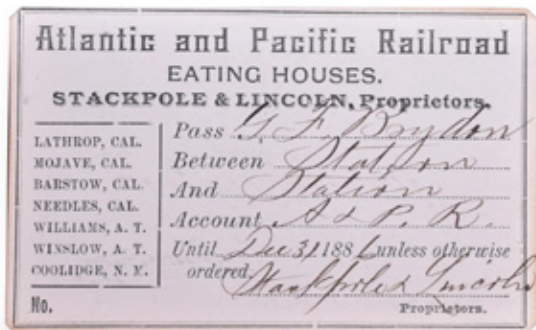 Atlantic and Pacific Railroad
EATING HOUSES.
STACKPOLE & LINCOLN, Proprietors.
LATHROP, CAL.
MOJAVE, CAL.
BARSTOW, CAL.
NEEDLES, CAL.
WILLIAMS, A. T.
WINSLOW, A. T.
COOLIDGE, N. M.
Pass G. F. Brydon
Between Station
And Station
Account A & P. R.
Until Dec 31 1886 unless otherwise
ordered. Stackpole & Lincoln
Proprietors.
No.